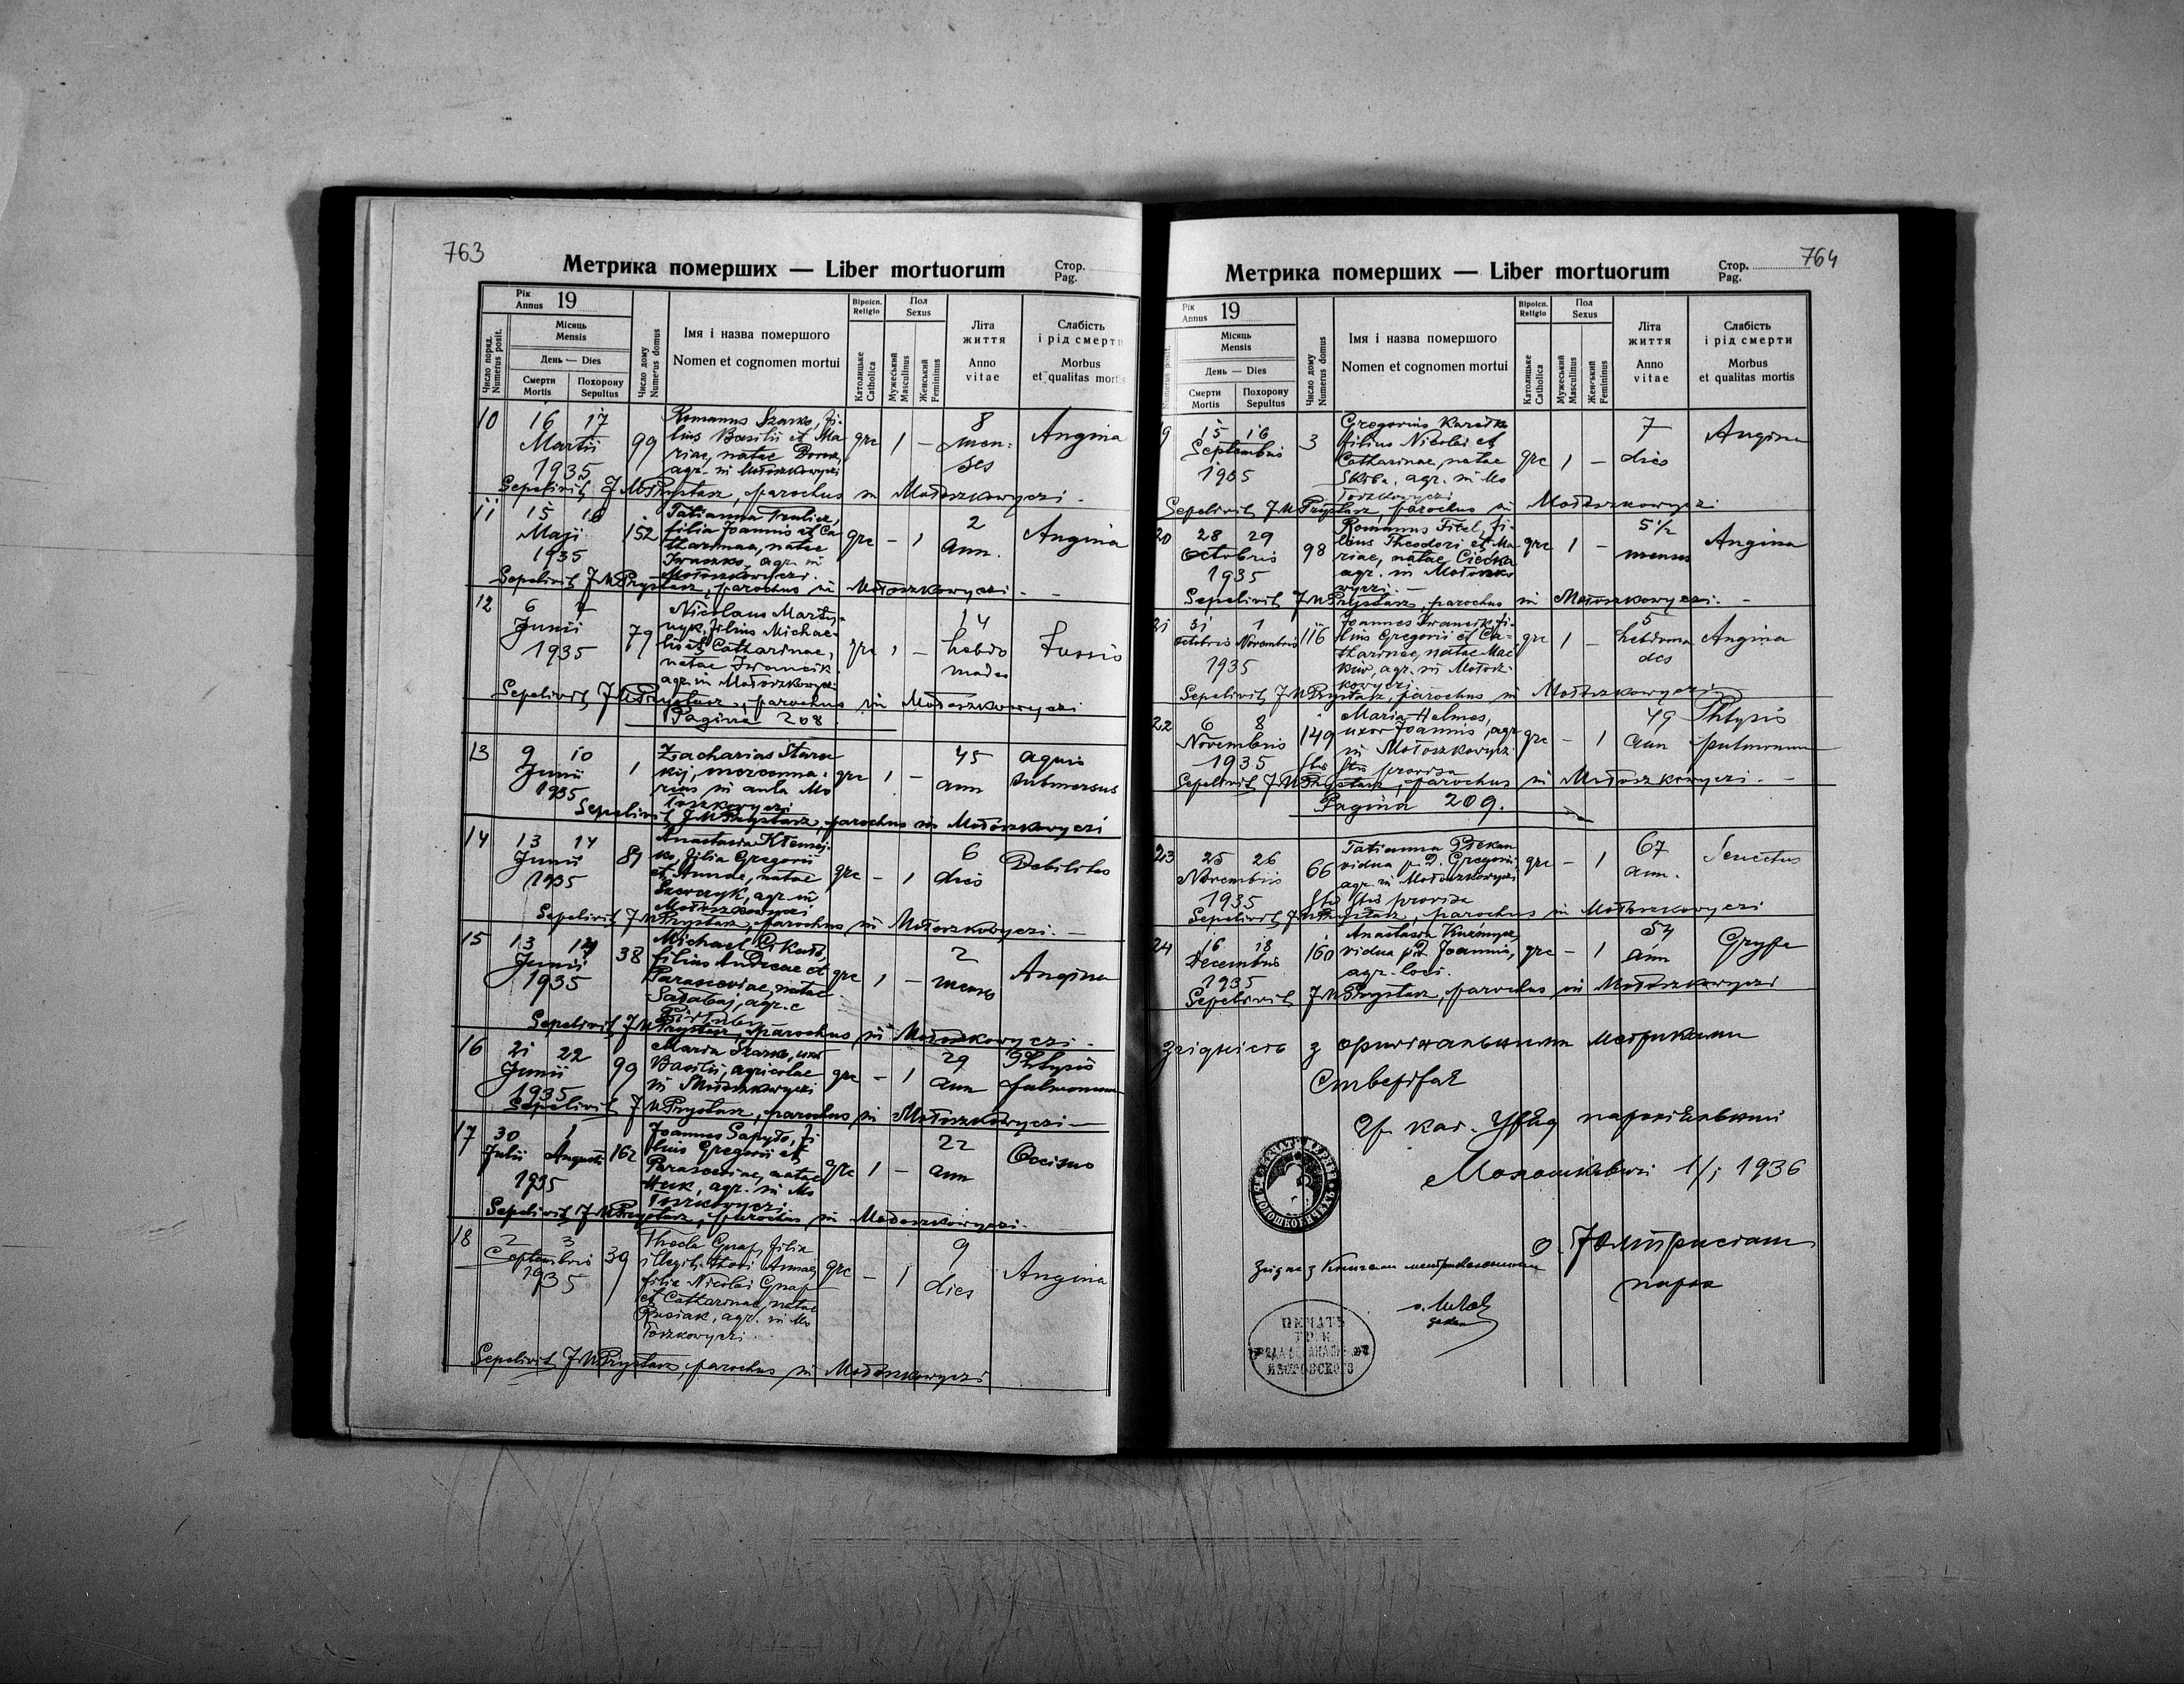 763
Метрика померших — Liber mortuorum
Стор.
Pag.
Рік
Annus 19
Місяць
Mensis
День — Dies
Смерти
Mortis
Похорону
Sepultus
Число поряд.
Numerus posit.
Число дому
Numerus domus
Імя і назва помершого
Nomen et cognomen mortui
Віроісп.
Religio
Католицьке
Catholica
Пол
Sexus
Мужеський
Masculinus
Женський
Femininus
Літа
життя
Anno
vitae
Слабість
і рід смерти
Morbus
et qualitas mortis
10 16 17 Martii 1935 99
Romanus Szarko, fi-
lius Basilii et Ma
riae, natae
agr. in Mołoszkowyczi
grc 1 – 8 men: ses Angina
Sepelivit J M Prystasz, parochus in Mołoszkowyczi -
11 15 16 Maji 1935 152
Tatianna
filia Joannis et Ca
tharinae, natae
Iwaszko, agr. in
Mołoszkowyczi.
grc – 1 2 ann. Angina
Sepelivit J M Prystasz, parochus in Mołoszkowyczi -
12 6 7 Junii 1935 79
Nicolaus Marty-
nyk, filius Michae-
lis et Catharinae,
natae Iwancik
agr. in Mołoszkowyczi
grc 1 – 14 hebdo mades Tussis
Sepelivit J M Prystasz, parochus in Mołoszkowyczi
Pagina 208
13 9 10 Junii 1935 1
Zacharias Stara
kij, mercenna-
rius in aula Mo
łoszkowyczi
grc 1 – 45 ann aquis submersus
Sepelivit J M Prystasz, parochus in Mołoszkowyczi
14 13 14 Junii 1935 87
Anastasia Kłemej-
ko, filia Gregorii
et Annae, natae
Szewczyk, agr. in
Mołoszkowyczi
grc – 1 6 dies Debilitas
Sepelivit J M Prystasz, parochus in Mołoszkowyczi. –
15 13 14 Junii 1935 38
Michael
filius Andreae et
Parasceviae, natae
Sałabaj, agr. e
grc 1 – 2 menses Angina
Sepelivit J M Prystasz, parochus in Mołoszkowyczi -
16 21 22 Junii 1935 99
Maria Szarko, uxor
Basilii, agricolae
in Mołoszkowyczi
grc – 1 29 ann Phtysis pulmonum
Sepelivit J M Prystasz, parochus in Mołoszkowyczi –
17 30 Julii 1 Augusti 1935 162
Joannes Sapyło, fi
lius Gregorii et
Parasceviae, natae
Huk, agr. in Mo
łoszkowyczi
grc 1 – 22 ann Occisus
Sepelivit J M Prystasz, parochus in Mołoszkowyczi.
18 2 3 Septembris 1935 39
Thecla Gnap, filia
illegit. thori Annae,
filiae Nicolai Gnap
et Catharinae, natae
Rusiak, agr. in Mo
łoszkowyczi.
grc – 1 9 dies Angina
Sepelivit J M Prystasz, parochus in Mołoszkowyczi
764
Метрика померших — Liber mortuorum
Стор.
Pag.
Рік
Annus 19
Місяць
Mensis
День — Dies
Смерти
Mortis
Похорону
Sepultus
Numerus posit.
Число дому
Numerus domus
Імя і назва помершого
Nomen et cognomen mortui
Віроісп.
Religio
Католицьке
Catholica
Пол
Sexus
Мужеський
Masculinus
Женський
Femininus
Літа
життя
Anno
vitae
Слабість
і рід смерти
Morbus
et qualitas mortis
9 15 16 Septembris 1935 3
Gregorius
filius Nicolai et
Catharinae, natae
Skiba, agr. in Mo
łoszkowyczi
grc 1 – 7 dies Angina
Sepelivit J M Prystasz, parochus in Mołoszkowyczi
20 28 29 Octobris 1935 98
Romanus Fitel, fi-
lius Theodori et Ma
riae, natae Ciećka
agr. in Mołoszko
wyczi. –
grc 1 – 5 1/2 menses Angina
Sepelivit J M Prystasz, parochus in Mołoszkowyczi. –
21 31 Octobris 1 Novembris 1935 116
Joannes Iwancik, fi-
lius Gregorii et Ca-
tharinae, natae Mać
ków, agr. in Mołosz-
kowyczi.
grc 1 – 5 hebdoma des Angina
Sepelivit J M Prystasz, parochus in Mołoszkowyczi
22 6 8 Novembris 1935 149
Maria Helmes,
uxor Joannis, agr.
in Mołoszkowyczi
provisa
grc – 1 49 ann Phtysis pulmonum
Sepelivit J M Prystasz, parochus in Mołoszkowyczi. –
Pagina 209.
23 25 26 Novembris 1935 66
Tatianna
vidua p. D. Gregorii,
agr. in Mołoszkowyczi
provisa
grc – 1 67 ann. Senectus
Sepelivit J M Prystasz, parochus in Mołoszkowyczi
24 16 18 Decembris 1935 160
Anastasia Kuzmycz,
vidua p. D. Joannis,
agr. loci.
grc – 1 54 ann Grypa
Sepelivit J M Prystasz, parochus in Mołoszkowyczi
Згідність з оригінальними метриками
Стверджає
Гр. кат. Уряд парохіяльний
Молошковичі 1/1 1936
о. Ю М Присташ
парох
Згідне з книгами метрикальними
декан
ПЕЧАТЬ
ГР. К.
ЯВОРОВСКОГО